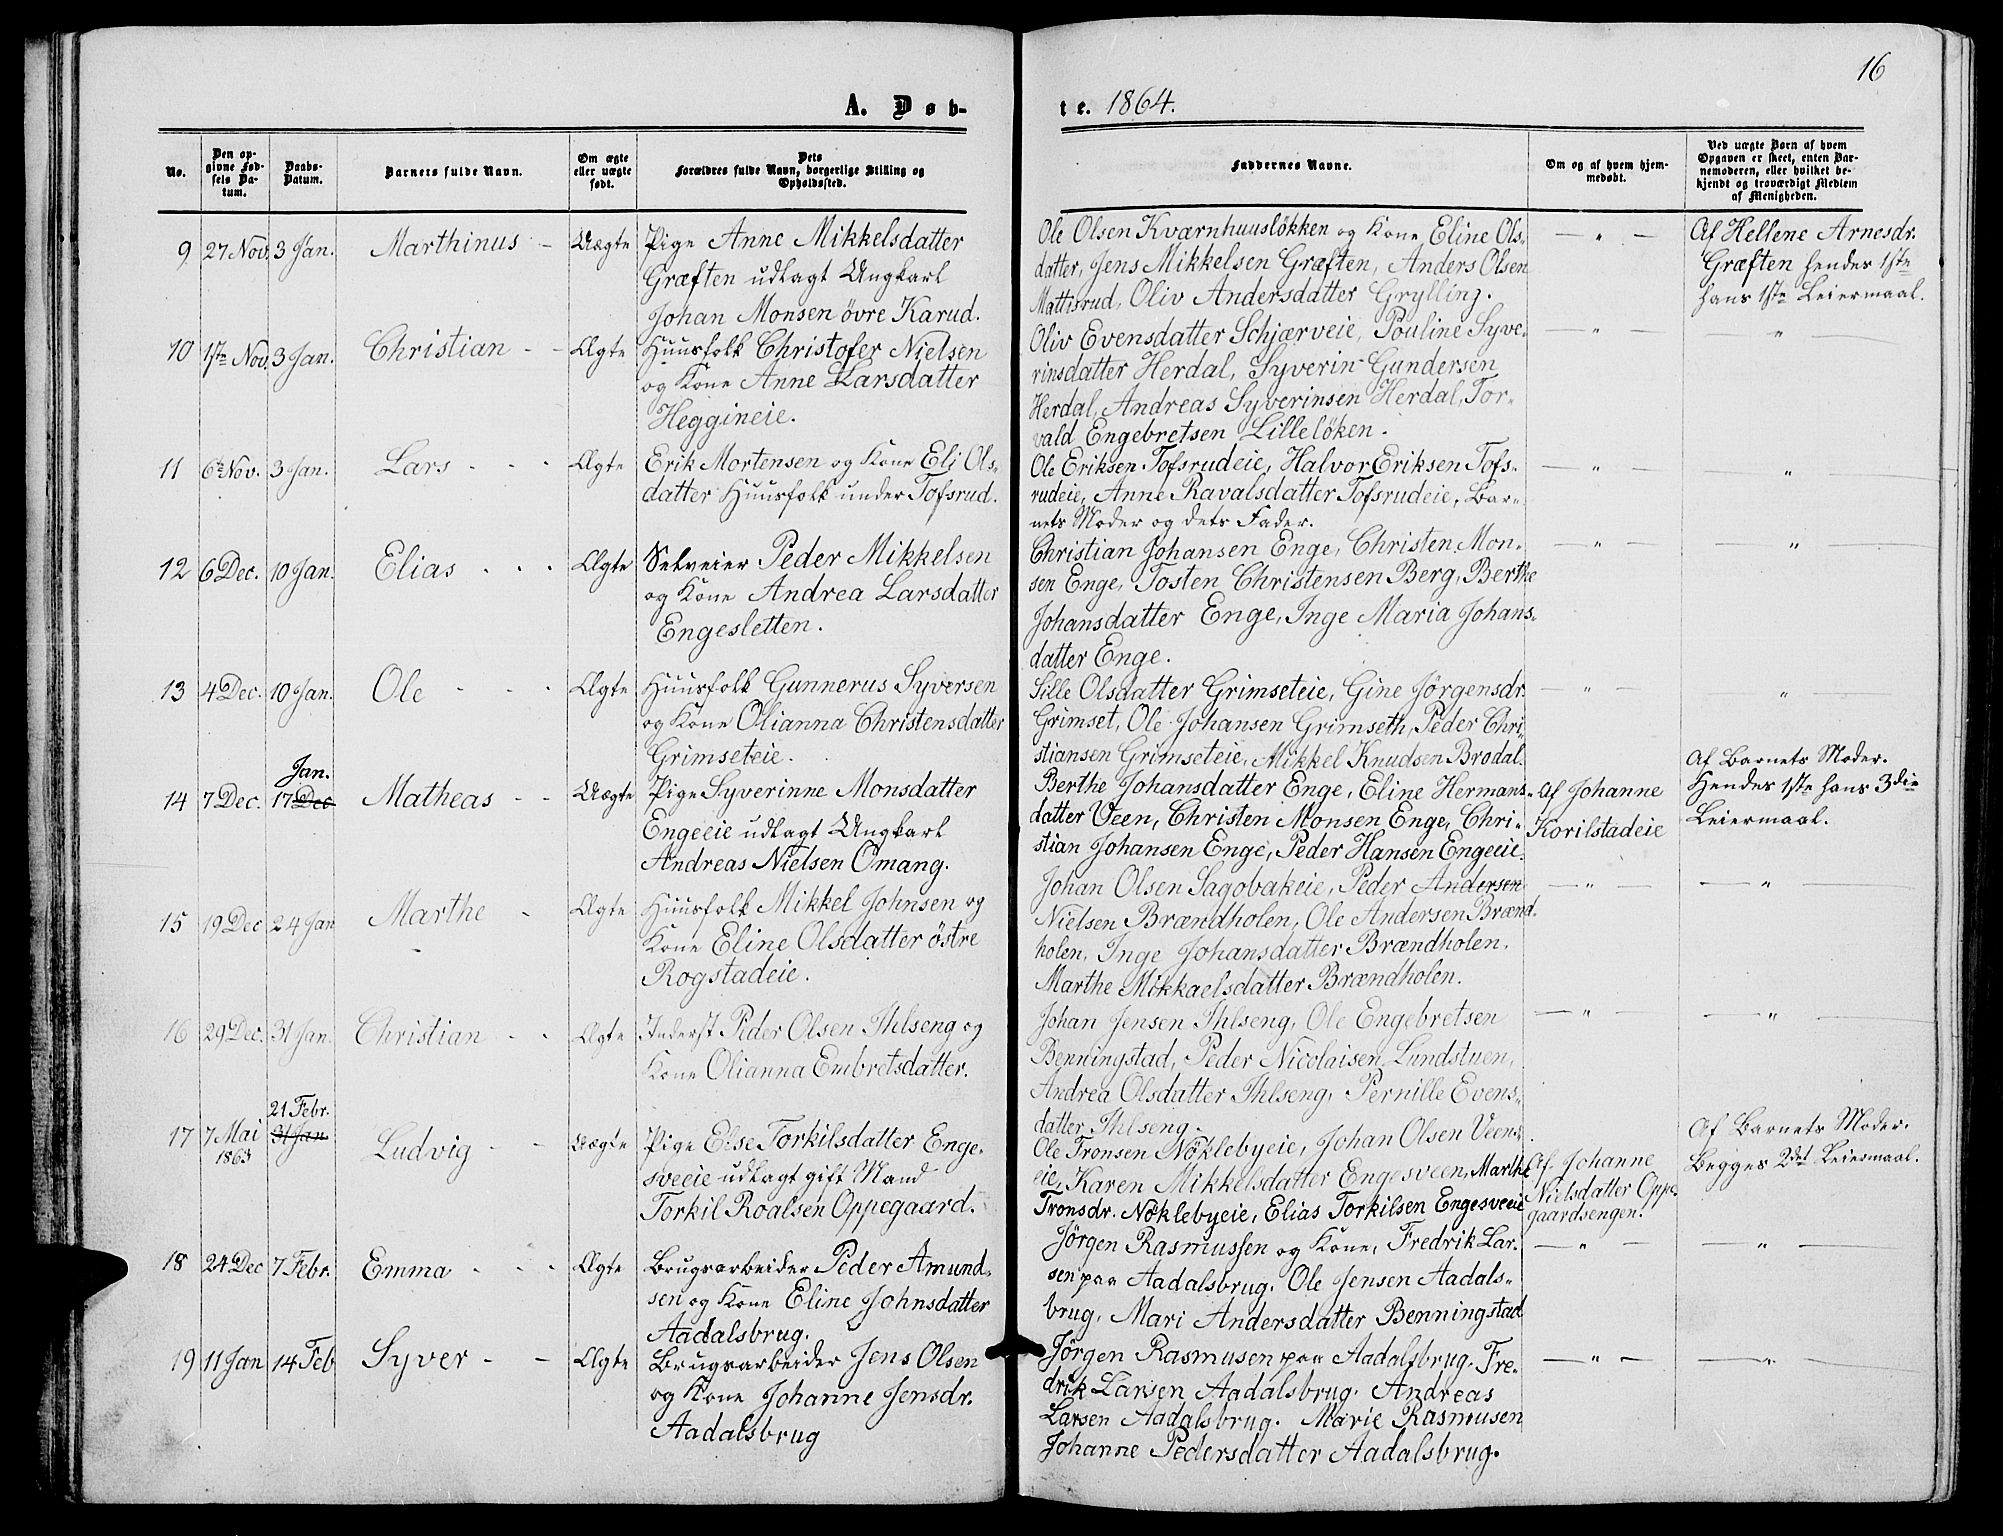 16
A. Døb-
te. 1864.
No.
Den op-
givne Fød-
sels Da-
tum.
Daabs-
Datum.
Barnets fulde Navn.
Om ægte
eller uægte
født.
Dets
Forældres fulde Navn, borgerlige Stilling og
Opholdssted.
Faddernes Navne.
Om og af hvem hjem-
medøbt.
Ved uægte Børn af hvem
Opgaven er skeet, enten Bar-
nemoderen, eller hvilket be-
kjendt og troværdigt Medlem
af Menigheden.
9 27 Nov. 3 Jan. Marthinus - Uægte
Pige Anne Mikkelsdatter
Græften udlagt Ungkarl
Johan Monsen övre Karud.
Ole Olsen Kværnhuuslökken og Kone Eline Ols-
datter, Jens Mikkelsen Græften, Anders Olsen
Mattisrud, Oliv Andersdatter Grylling.
— " —
Af Hellene Arnesdr.
Græften hendes 1ste
hans 1ste Leiermaal.
10 1ste Nov. 3 Jan. Christian - - Ægte
Huusfolk Christofer Nielsen
og Kone Anne Larsdatter
Heggineie.
Oliv Evensdatter Schjærveie, Pouline Syve-
rinsdatter Herdal, Syverin Gundersen
Herdal, Andreas Syverinsen Herdal, Tor-
vald Engebretsen Lillelöken.
— " —
"
11 6te Nov. 3 Jan. Lars - - - Ægte
Erik Mortensen og Kone Eli Ols-
datter Huusfolk under Tofsrud.
Ole Eriksen Tofsrudeie, Halvor Eriksen Tofs-
rudeie, Anne Ravalsdatter Tofsrudeie, Bar-
nets Moder og dets Fader.
— " —
— " —
12 6 Dec. 10 Jan. Elias - - - Ægte
Selveier Peder Mikkelsen
og Kone Andrea Larsdatter
Engesletten.
Christian Johansen Enge, Christen Mon-
sen Enge, Tosten Christensen Berg, Berthe
Johansdatter Enge, Inge Maria Johans-
datter Enge.
— " —
— " —
13 4 Dec. 10 Jan. Ole - - - Ægte
Huusfolk Gunnerus Syversen
og Kone Olianna Christensdatter
Grimseteie.
Sille Olsdatter Grimseteie, Gine Jörgensdr.
Grimset, Ole Johansen Grimseth, Peder Chri-
stiansen Grimseteie, Mikkel Knudsen Brodal.
— " —
"
14 7 Dec. Jan.
17 Dec Matheas - - Uægte
Pige Syverinne Monsdatter
Engeeie udlagt Ungkarl
Andreas Nielsen Omang.
Berthe Johansdatter Enge, Eline Hermans-
datter Veen, Christen Monsen Enge, Chri-
stian Johansen Enge, Peder Hansen Engeeie.
Af Johanne
Korilstadeie
Af Barnets Moder.
Hendes 1ste hans 3die
Leiermaal.
15 19 Dec 24 Jan Marthe - Ægte
Huusfolk Mikkel Johnsen og
Kone Eline Olsdatter östre
Rogstadeie.
Johan Olsen Sagobakeie, Peder Andersen
Nielsen Brændholen, Ole Andersen Brænd-
holen, Inge Johansdatter Brændholen,
Marthe Mikkaelsdatter Brændholen.
— " —
— " —
16 29 Dec. 31 Jan. Christian - - Ægte
Inderst Peder Olsen Ihlseng og
Kone Olianna Embretsdatter.
Johan Jensen Ihlseng, Ole Engebretsen
Benningstad, Peder Nicolaisen Lundstuen,
Andrea Olsdatter Ihlseng, Pernille Evens-
datter Ihlseng.
— " —
— " —
17 7 Mai
1863
21 Febr.
31 Jan Ludvig - - Uægte
Pige Else Torkilsdatter Enge-
sveeie udlagt gift Mand
Torkil Roalsen Oppegaard.
Ole Tronsen Nöklebyeie, Johan Olsen Veens-
eie, Karen Mikkelsdatter Engesveen, Marthe
Tronsdr. Nöklebyeie, Elias Torkilsen Engesveeie
Af Johanne
Nielsdatter Oppe-
gaardsengen.
Af Barnets Moder.
Begges 2det Leiermaal.
18 24 Dec 7 Febr. Emma - - - Ægte
Brugsarbeider Peder Amund-
sen og Kone Eline Johnsdatter
Aadalsbrug.
Jörgen Rasmussen og Kone, Fredrik Lar-
sen paa Aadalsbrug. Ole Jensen Aadals-
brug, Mari Andersdatter Benningstad
— " —
— " —
19 11 Jan 14 Feb Syver - - Ægte
Brugsarbeider Jens Olsen
og Kone Johanne Jensdr.
Aadalsbrug
Jörgen Rasmusen paa Aadalsbrug. Fre-
drik Larsen Aadalsbrug. Andreas
Larsen Aadalsbrug. Marie Rasmusen
Johanne Pedersdatter Aadalsbrug.
— " —
— " —